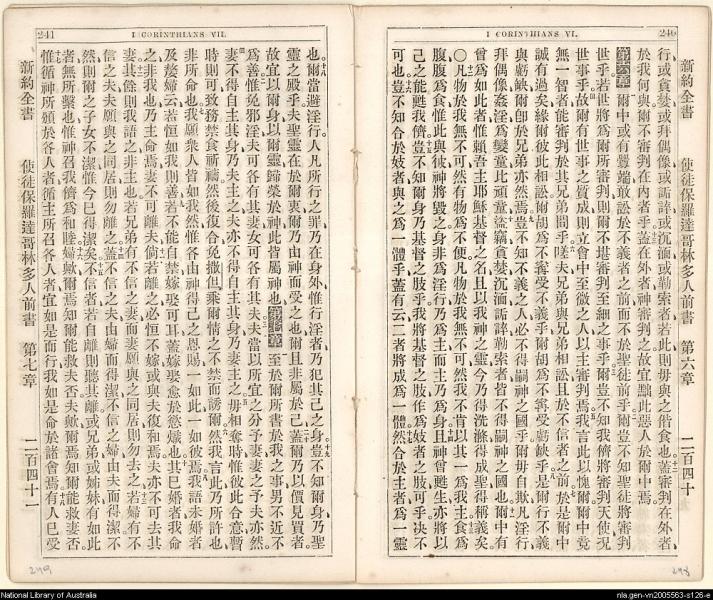 I CORINTHIANS VI. 240
新約全書 使徒保羅達哥林多人前書 第六章 二百四十
行或貪婪或拜偶像或詬誶或沉湎或勒索者若此則毋與之偕食也蓋審判在外者
於我何與爾不審判在內者乎蓋在外者神審判之故宜黜此惡人於爾中焉
第六章 爾中或有釁端敢訟於不義者之前而不於聖徒前乎爾豈不知聖徒將審判
世乎若世將爲爾所審判則爾不堪審判至細之事乎爾豈不知我儕將審判天使況
世事乎故爾有世事之質成則立會中至微之人以主審判焉我言此以愧爾爾中竟
無一智者能審判於其兄弟間乎嗟夫兄弟與兄弟相訟且於不信者之前於是爾中
誠有過矣緣爾彼此相訟爾胡爲不寗受不義乎爾胡爲不寗受虧缺乎是爾行不義
與虧缺爾卽於兄弟亦然焉豈不知不義之人必不得嗣神之國乎爾毋自欺凡淫行
拜偶像姦淫爲孌童比頑童盜竊貪婪沉湎詬誶勒索者皆不得嗣神之國也爾中有
曾爲如此者惟賴吾主耶穌基督之名且以我神之靈今乃得洗滌得成聖得稱義矣
○凡物於我無不可然有物爲不便凡物於我無不可然我不肯以其一爲我主食爲
腹腹爲食惟此與彼神將毀之身非爲淫行乃爲主而主乃爲身且神曾甦主亦將以
己之能甦我儕豈不知爾身乃基督之肢乎我將基督之肢作爲妓者之肢可乎決不
可也豈不知合於妓者與之爲一體乎蓋有云二者將成爲一體然合於主者爲一靈
241 I CORINTHIANS VII.
也爾當避淫行人凡所行之罪乃在身外惟行淫者乃犯其己之身豈不知爾身乃聖
靈之殿乎夫聖靈在於爾衷爾乃由神而受之也爾且非屬於己蓋爾乃以價見買者
故宜以爾身以爾靈歸榮於神此皆屬神也第七章 至於爾所書於我之事男不近女
爲善惟免邪淫夫可各有其妻女可各有其夫夫當以所宜之分予妻妻之予夫亦然
妻不得自主其身乃夫主之夫亦不得自主其身乃妻主之毋相奪時惟彼此合意暫
時則可致務禁食祈禱然後復合免撒但乘爾情之不禁而誘爾然我言此乃所許也
非所命也我願衆人皆如我然惟各由神得己之恩賜一如此一如彼焉我語未婚者
及嫠婦云若恒如我則善若不能自禁嫁娶可耳蓋嫁娶愈於慾燬也其已婚者我命
之非我也乃主命焉妻不可離夫倘若離之必恒不嫁或與夫復和焉夫亦不可去其
妻其餘則我語之非主也若兄弟有不信之妻而妻願與之同居則勿去之若婦有不
信之夫夫願與之同居則勿離之蓋不信之夫由婦而得潔不信之婦由夫而得潔不
然則爾之子女不潔惟今已得潔矣不信者若自離則聽其離或兄弟或姊妹有如此
者無所繫也惟神召我儕爲和睦婦歟爾焉知爾能救夫否夫歟爾焉知爾能救妻否
惟循神所頒於各人者循主所召各人者宜如是而行我如是命於諸會焉有人已受
新約全書 使徒保羅達哥林多人前書 第七章 二百四十一
249
248
National Library of Australia
nla.gen-vn2005563-s126-e